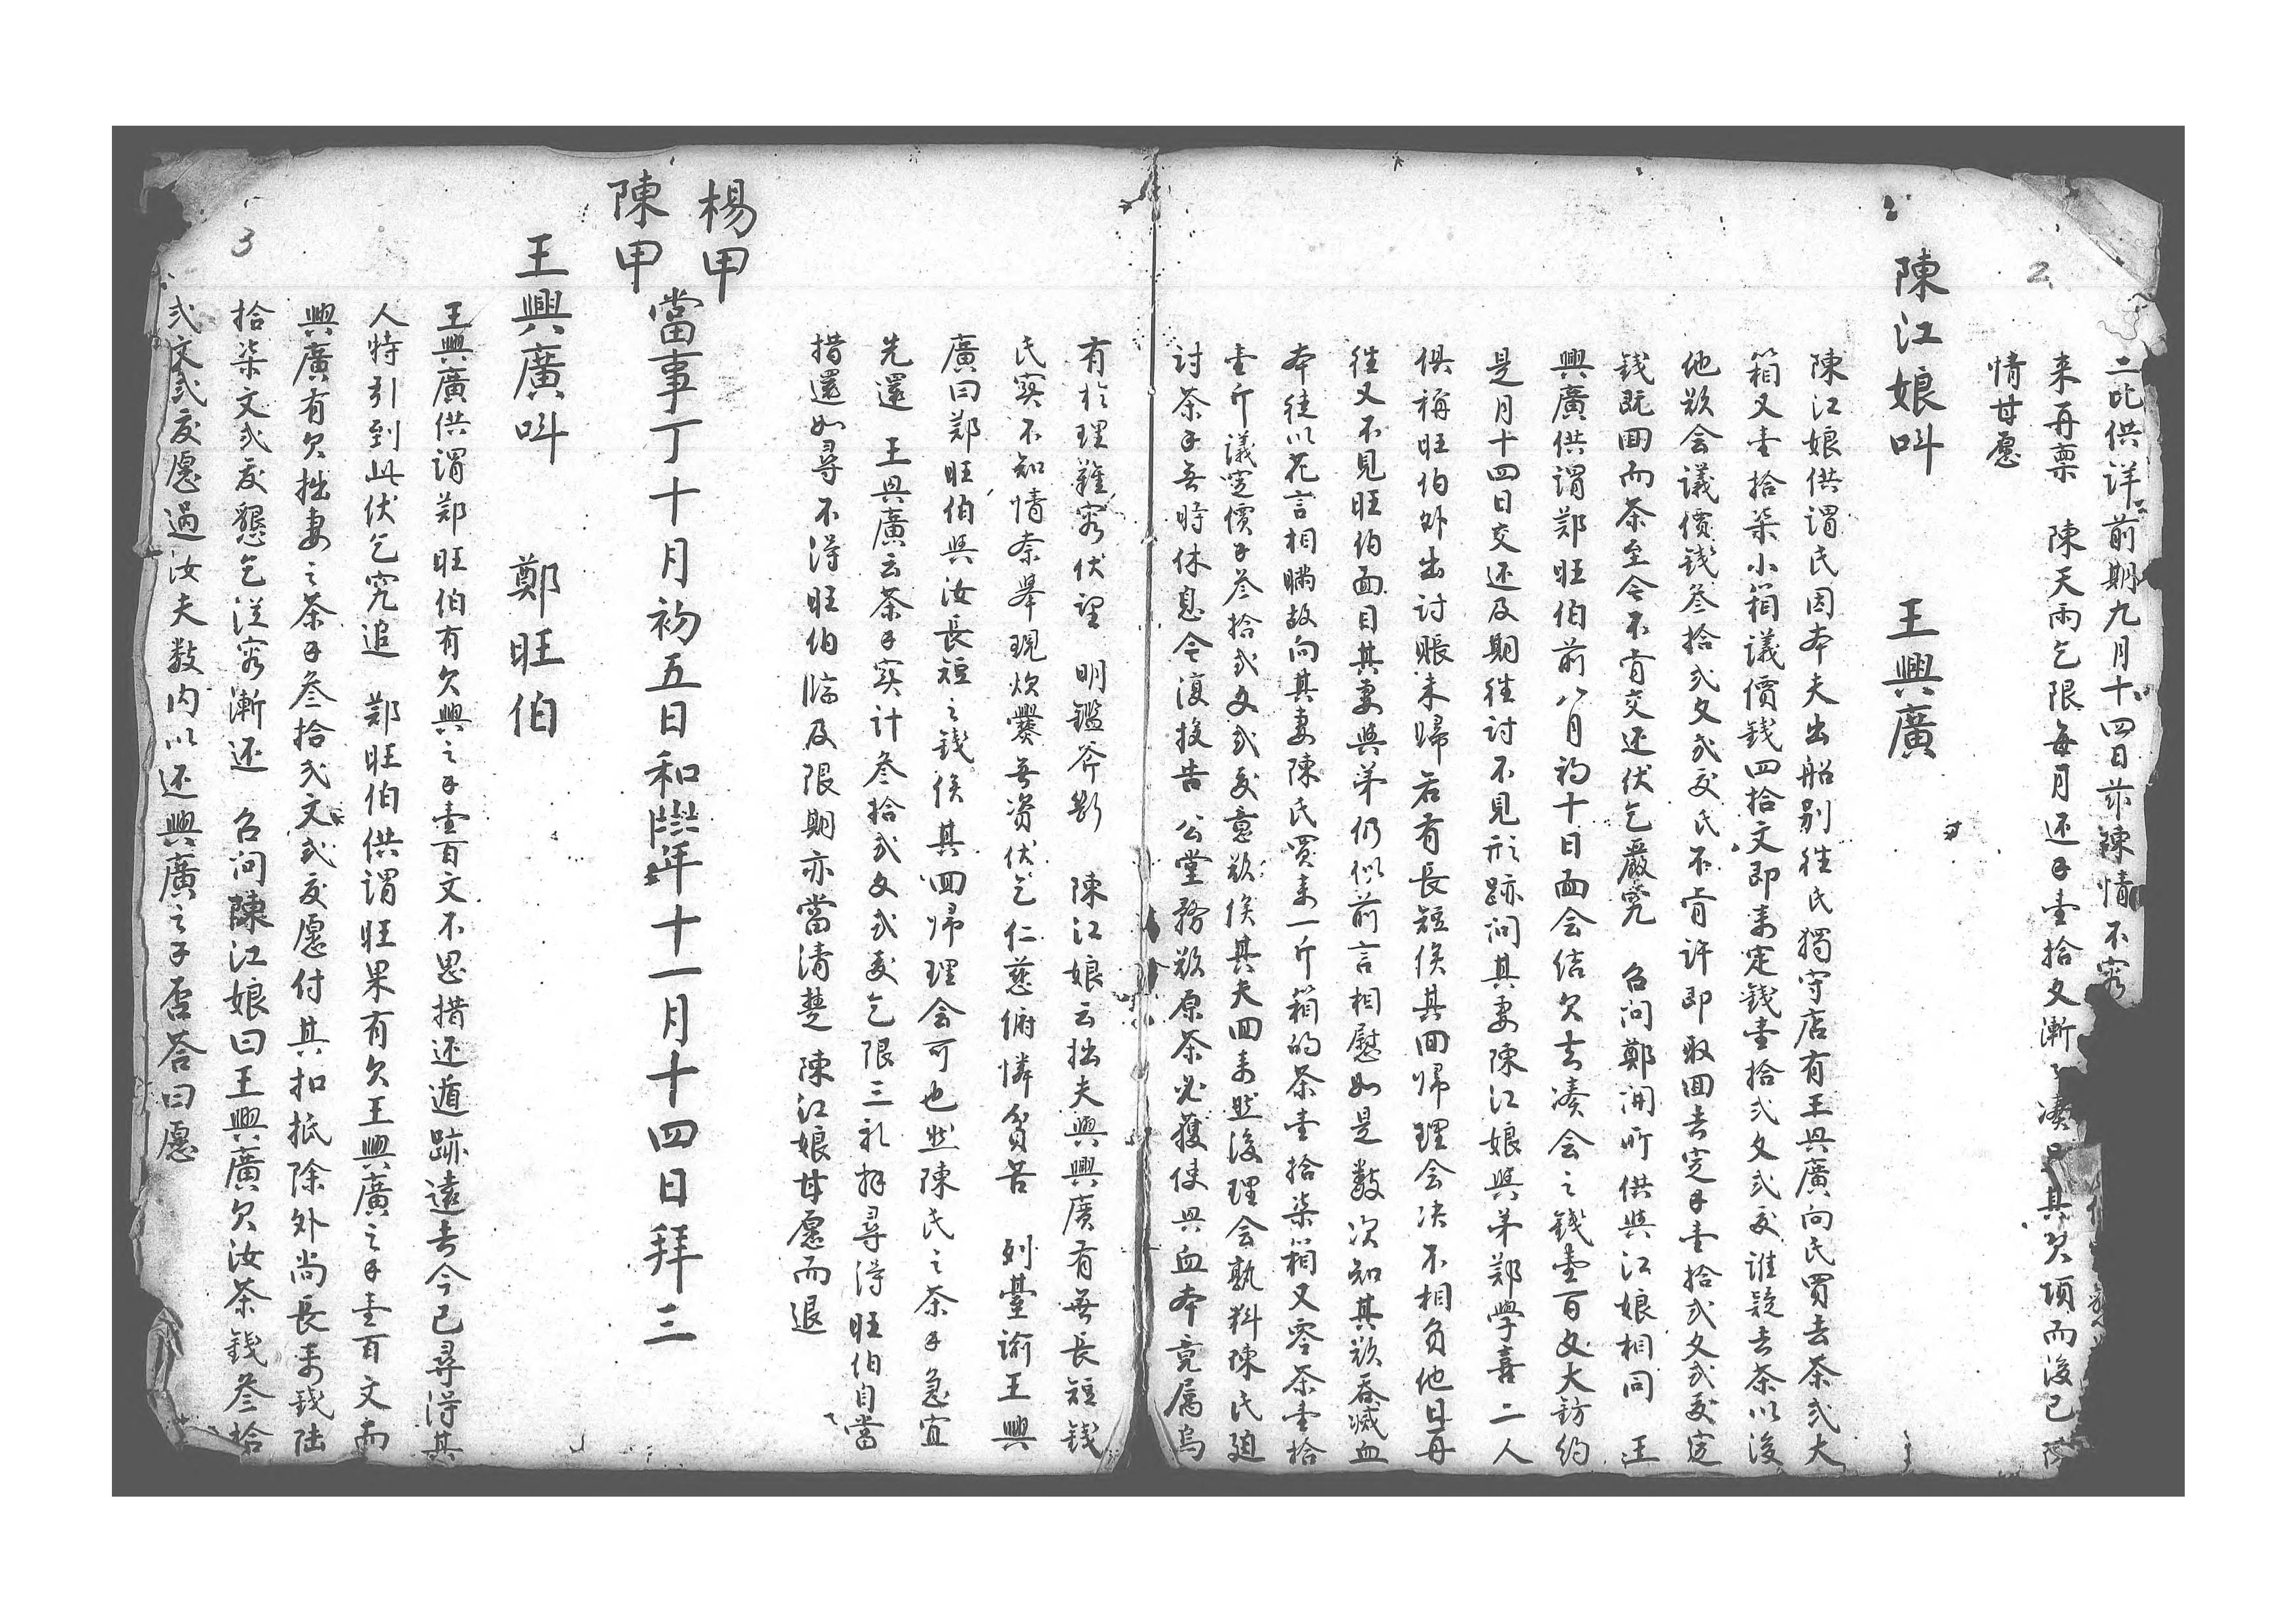 2
二比供詳前期九月十四日亦陳情不容
来再禀 陳天雨乞限每月还子壹拾文漸々湊 其欠項而後已
情甘愿
陳江娘呌 王興廣
陳江娘供謂民因本夫出船别往民獨守店有王興廣向民買去茶弍大
箱又壹拾柒小箱議價錢四拾文即来定錢壹拾弍文弍方誰疑去茶以後
他欲会議價錢叁拾弍文弍方民不肯许即取回去定子壹拾弍文弍方定
錢既囬而茶至今不肯交还伏乞嚴究 召问鄭開所供與江娘相同 王
興廣供谓郑旺伯前八月初十日面会结欠去湊会之錢壹百文大钫约
是月十四日交还及期往讨不見形跡问其妻陳江娘與弟郑學喜二人
俱稱旺伯外出讨賬未歸若有長短俟其回归理会决不相负他日再
往又不見旺伯面目其妻與弟仍似前言相慰如是数次知其欲吞减血
本徒以花言相瞒故向其妻陳氏買来一斤箱的茶壹拾柒箱又零茶壹拾
壹斤議定價子叁拾弍文弍方意欲俟其夫回来然後理会孰料陳氏廹
讨茶子無時休息今復投告 公堂務欲原茶必獲使興血本竟属烏
有於理難容伏望 明鑑斧斷 陳江娘云拙夫與興廣有無長短錢
民实不知情奈舉現炊爨無资伏乞仁慈俯憐贫苦 列臺諭王興
廣曰郑旺伯與汝長短之錢俟其回归理会可也然陳民之茶子急宜
先還 王興廣云茶子实计叁拾弍文弍方乞限三礼拜尋得旺伯自當
措還如尋不得旺伯臨及限期亦當清楚 陳江娘甘愿而退
楊甲
陳甲
當事丁十月初五日和 年十一月十四日拜三
王興廣呌 鄭旺伯
王興廣供谓郑旺伯有欠興之子壹百文不思措还遁跡遠去今已尋得其
人特引到此伏乞究追 郑旺伯供谓旺果有欠王興廣之子壹百文而
興廣有欠拙妻之茶子叁拾弍文弍方愿付其扣抵除外尚長来錢陆
拾柒文弍方懇乞従容漸还 召问陳江娘曰王興廣欠汝茶錢叁拾
弍文弍方愿過汝夫数内以还興廣之子否答曰愿
3